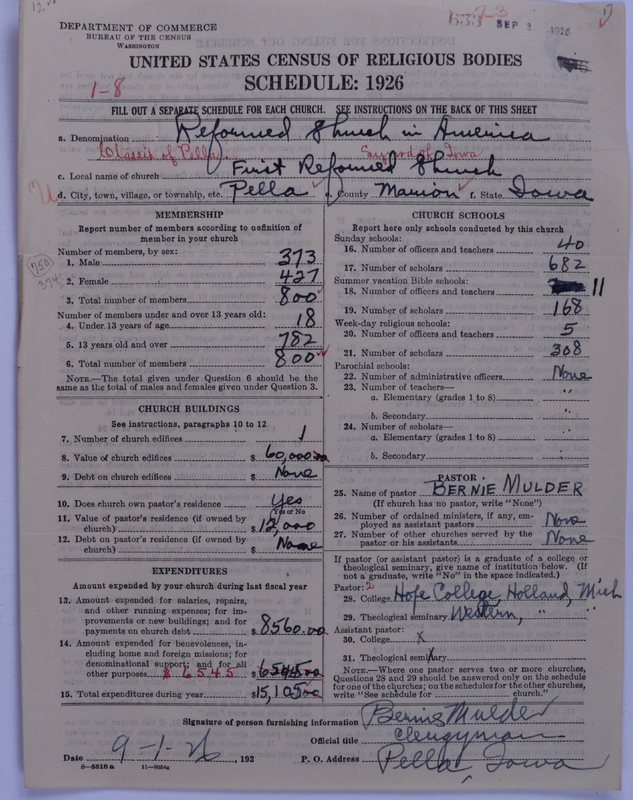 DEPARTMENT OF COMMERCE
BUREAU OF THE CENSUS
WASHINGTON
SEP 3 1926
UNITED STATES CENSUS OF RELIGIOUS BODIES
SCHEDULE: 1926
1-8
FILL OUT A SEPARATE SCHEDULE FOR EACH CHURCH. SEE INSTRUCTIONS ON THE BACK OF THIS SHEET
a. Denomination Reformed Church in America
Classis of Pella. Synod of Iowa
c. Local name of church First Reformed Church
d. City, town, village, or township, etc. Pella e. County Marion f. State Iowa
MEMBERSHIP
Report number of members according to definition of member in your church
Number of members, by sex:
1. Male 373
2. Female 427
3. Total number of members 800
Number of members under and over 13 years old:
4. Under 13 years of age 18
5. 13 years old and over 782
6. Total number of members 800
NOTE.—The total given under Question 6 should be
same as the total of males and females given under Question 3.
CHURCH BUILDINGS
See instructions, paragraphs 10 to 12
7. Number of church edifices 1
8. Value of church edifices $ 60,000.00
9. Debt on church edifices $ None
10. Does church own pastor's residence Yes
Yes or No
11. Value of pastor's residence (if owned by
church) $ 12,000
12. Debt on pastor's residence (if owned by
church) $ None
EXPENDITURES
Amount expended by your church during last fiscal year
13. Amount expended for salaries, repairs,
and other running expenses; for im-
provements or new buildings; and for
payments on church debt $ 8560.00
14. Amount expended for benevolences, in-
cluding home and foreign missions; for
denominational support; and for all
other purposes $ 6545 $ 6545.00
15. Total expenditures during year $ 15,105.00
CHURCH SCHOOLS
Report here only schools conducted by this church
Sunday schools:
16. Number of officers and teachers 40
17. Number of scholars 682
Summer vacation Bible schools:
18. Number of officers and teachers 11
19. Number of scholars 168
Week-day religious schools:
20. Number of officers and teachers 5
21. Number of scholars 308
Parochial schools:
22. Number of administrative officers None
23. Number of teachers—
a. Elementary (grades 1 to 8) "
b. Secondary "
24. Number of scholars—
a. Elementary (grades 1 to 8) "
b. Secondary "
PASTOR
25. Name of pastor BERNIE MULDER
(If church has no pastor, write "None")
26. Number of ordained ministers, if any, em-
ployed as assistant pastors None
27. Number of other churches served by the
pastor or his assistants None
If pastor (or assistant pastor) is a graduate of a college or
theological seminary, give name of institution below. (If
not a graduate, write "No" in the space indicated.)
Pastor: 2
28. College Hope College, Holland, Mich
29. Theological seminary Western, " "
Assistant pastor:
30. College x
31. Theological seminary
NOTE.—Where one pastor serves two or more churches,
Questions 28 and 29 should be answered only on the schedule
for one of the churches; on the schedules for the other churches,
write "See schedule for church."
Signature of person furnishing information Bernie Mulder
Official title Clergyman
Date 9-1-26, 192 P. O. Address Pella, Iowa
8-5518a 11-9054